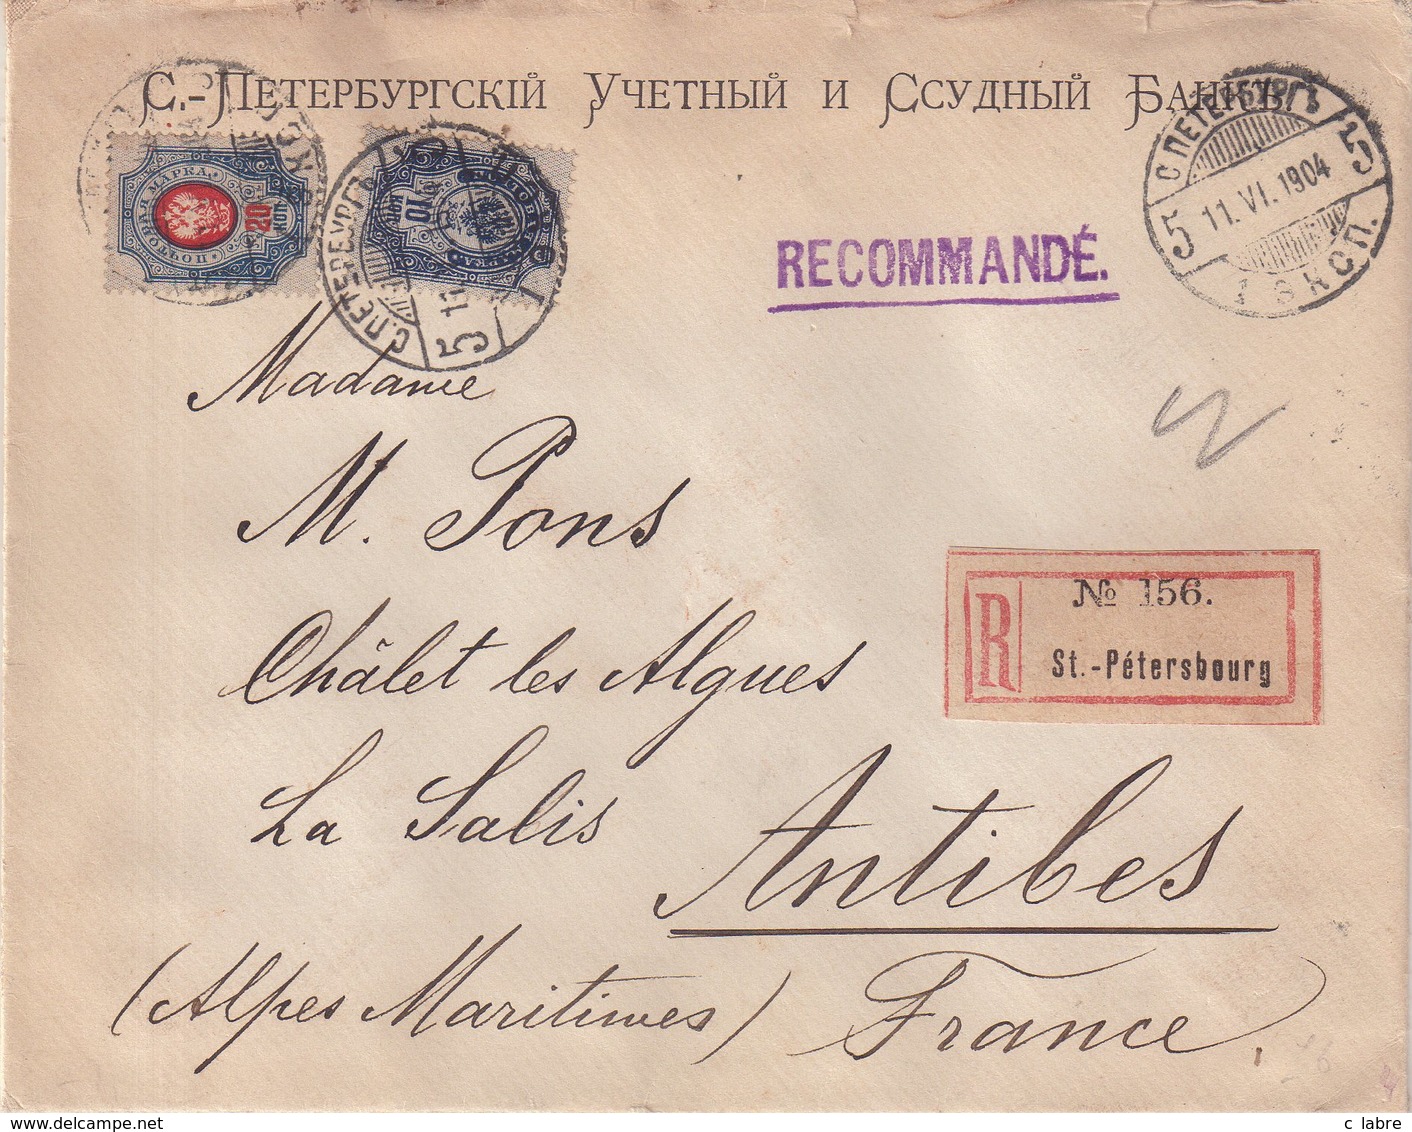 С.-Петербургскій Учетный и Ссудный Банкъ.
ПОЧТОВАЯ МАРКА
20 КОП
10 КОП
С.ПЕТЕРБУРГЪ
5
С.ПЕТЕРБУРГЪ
5 11.VI.1904 5
1 ЭКСП.
RECOMMANDÉ.
Madame
M. Pons
№ 156.
R St.-Pétersbourg
Châlet les Algues
La Salis
Antibes
(Alpes Maritimes) France.
delcampe.net
c labre